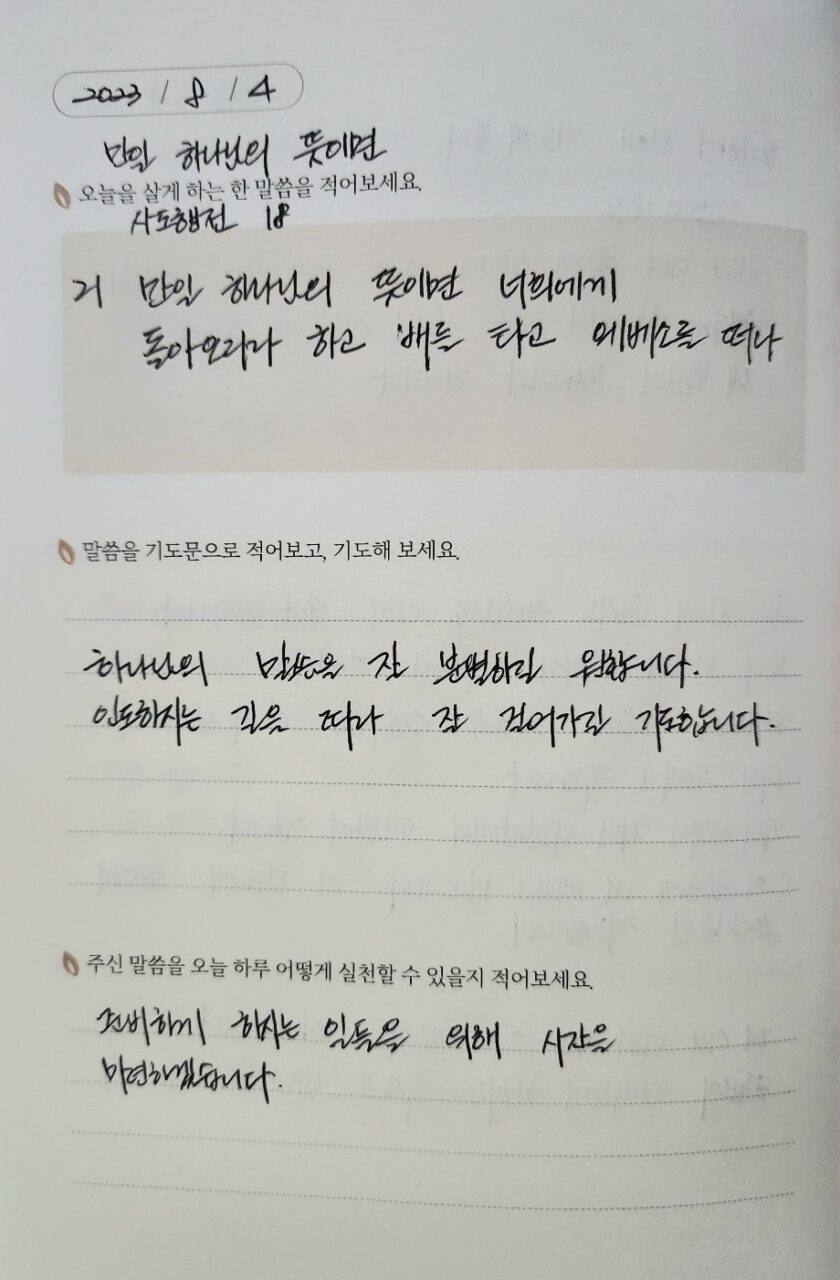 2023 / 8 / 4
만일 하나님의 뜻이면
오늘을 살게 하는 한 말씀을 적어보세요.
사도행전 18
21 만일 하나님의 뜻이면 너희에게
돌아오리라 하고 배를 타고 에베소를 떠나
말씀을 기도문으로 적어보고, 기도해 보세요.
하나님의 말씀을 잘 분별하길 원합니다.
인도하시는 길을 따라 잘 걸어가길 기도합니다.
주신 말씀을 오늘 하루 어떻게 실천할 수 있을지 적어보세요.
준비하게 하시는 일들을 위해 시간을
마련하겠습니다.